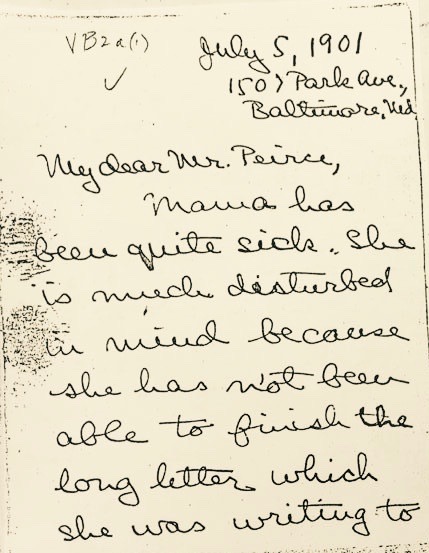 VB2a(1)
July 5, 1901
1507 Park Ave.,
Baltimore, Md
My dear Mr. Peirce,
Mama has
been quite sick. She
is much disturbed
in mind because
she has not been
able to finish the
long letter which
she was writing to